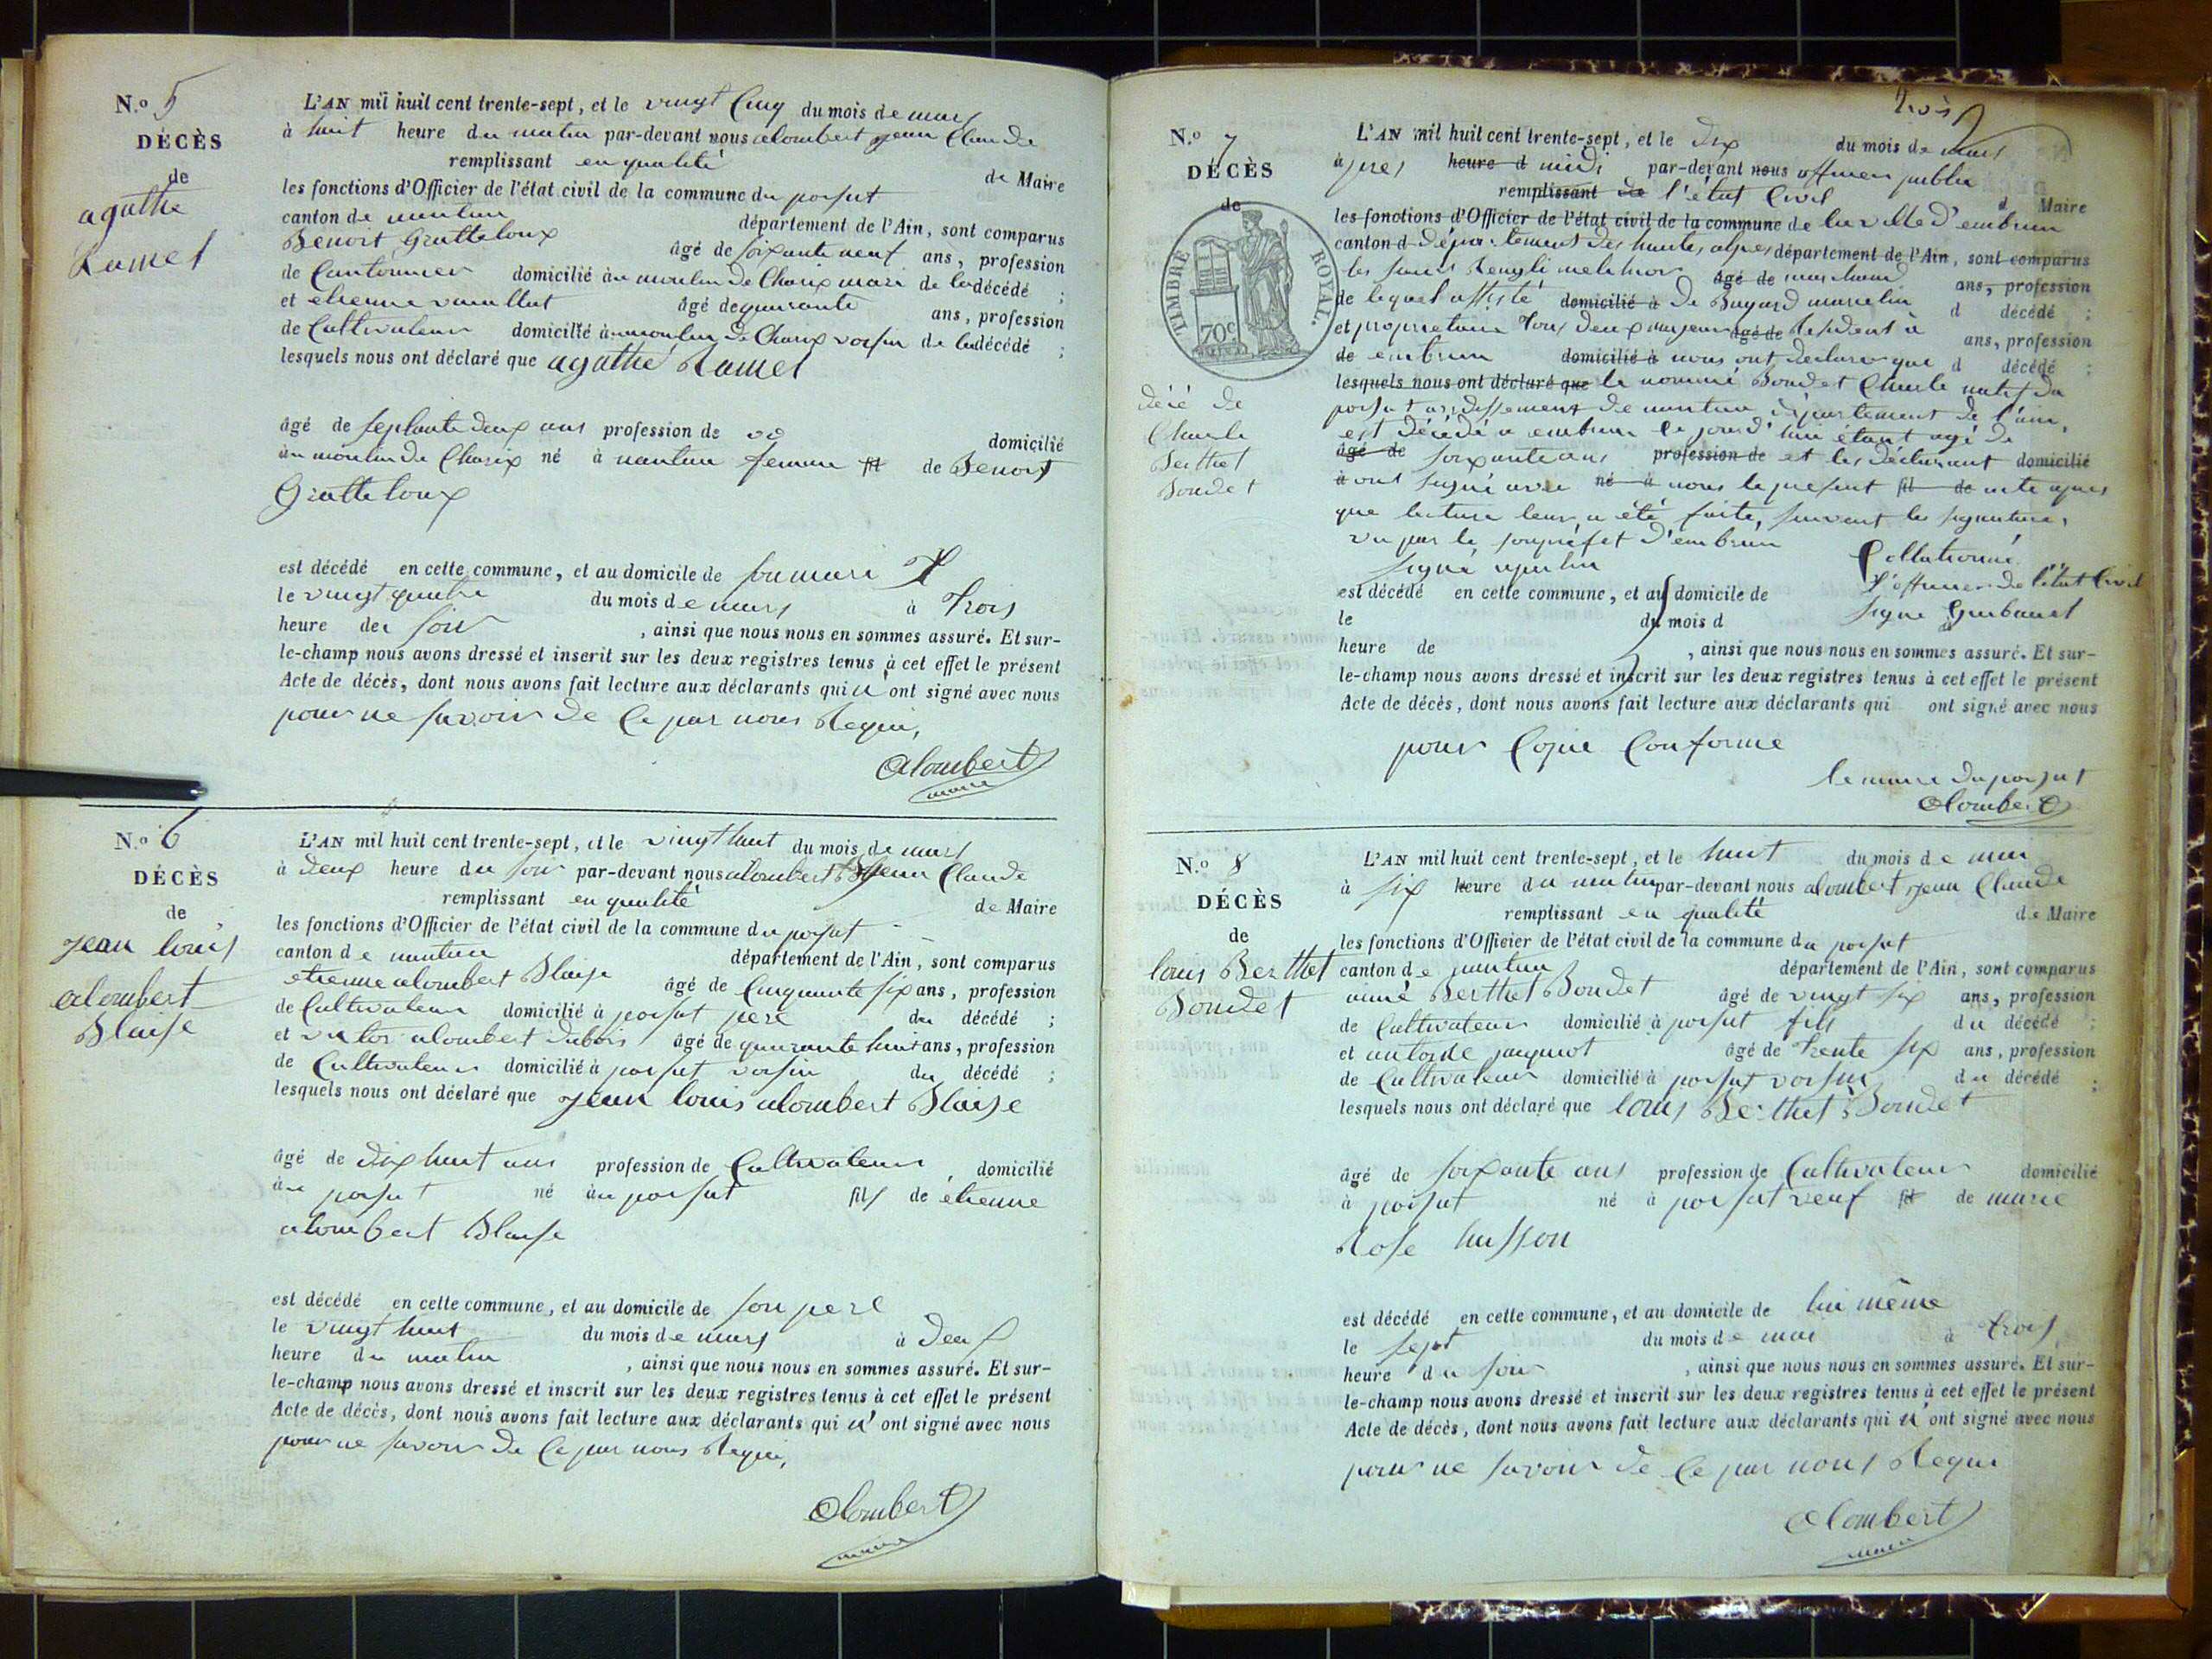 N.o 5
DÉCÈS
de
agathe
Ramel
L'AN mil huit cent trente-sept, et le vingt Cinq du mois de mars
à huit heure du matin par-devant nous alombert jean Claude
remplissant en qualité de Maire
les fonctions d'Officier de l'état civil de la commune du poisat
canton de nantua département de l'Ain, sont comparus
Benoit Gratteloup âgé de soixante neuf ans, profession
de Cantonnier domicilié au moulin de Charix mari de la décédé ;
et etienne vaillat âgé de quarante ans, profession
de Cultivateur domicilié au moulin de Charix voisin de la décédé ;
lesquels nous ont déclaré que agathe Ramel
âgé de septante deux ans profession de domicilié
au moulin de Charix né à nantua femme fil de Benoit
Gratteloup
est décédé en cette commune, et au domicile de son mari
le vingt quatre du mois de mars à trois
heure de soir, ainsi que nous nous en sommes assuré. Et sur-
le-champ nous avons dressé et inscrit sur les deux registres tenus à cet effet le présent
Acte de décès, dont nous avons fait lecture aux déclarants qui n'ont signé avec nous
pour ne savoir de Ce par nous Requi,
alombert
maire
N.o 6
DÉCÈS
de
jean louis
alombert
Blaise
L'AN mil huit cent trente-sept, et le vingt huit du mois de mars
à deux heure du soir par-devant nous alombert jean Claude
remplissant en qualité de Maire
les fonctions d'Officier de l'état civil de la commune du poisat
canton de nantua département de l'Ain, sont comparus
etienne alombert Blaise âgé de Cinquante six ans, profession
de Cultivateur domicilié à poisat pere du décédé ;
et victor alombert dubois âgé de quarante huit ans, profession
de Cultivateur domicilié à poisat voisin du décédé ;
lesquels nous ont déclaré que jean louis alombert Blaise
âgé de dix huit ans profession de Cultivateur domicilié
au poisat né au poisat fils de étienne
alombert Blaise
est décédé en cette commune, et au domicile de son pere
le vingt huit du mois de mars à deux
heure du matin, ainsi que nous nous en sommes assuré. Et sur-
le-champ nous avons dressé et inscrit sur les deux registres tenus à cet effet le présent
Acte de décès, dont nous avons fait lecture aux déclarants qui n'ont signé avec nous
pour ne savoir de Ce par nous Requi,
alombert
maire
trois
N.o 7
DÉCÈS
de
TIMBRE ROYAL.
70c
décé de
Charle
Berthet
Boudet
L'AN mil huit cent trente-sept, et le dix du mois de mars
à pres heure d midi par-devant nous officier public
remplissant de l'état Civil d Maire
les fonctions d'Officier de l'état civil de la commune de la ville d'embrun
canton d département des hautes alpes département de l'Ain, sont comparus
les sieurs melchior âgé de marchand ans, profession
de lequel assisté domicilié à de Bayard marcelin d décédé ;
et proprietaire tous deux majeurs âgé de Résident à ans, profession
de embrun domicilié à nous ont declare que d décédé ;
lesquels nous ont déclaré que le nommé Boudet Charle natif du
poisat arrdissement de nantua département de l'ain,
est décédé a embrun Ce jourd'hui étant agé de
âgé de soixante ans profession de et les déclarant domicilié
à ont signé avec né à nous le present fil de acte apres
que lecture leur a été faite, suivent les signatures,
vu par le souprefet d'embrun
Collationné
signé
L'officier de l'état Civil
est décédé en cette commune, et au domicile de
signe
le du mois d
heure de, ainsi que nous nous en sommes assuré. Et sur-
le-champ nous avons dressé et inscrit sur les deux registres tenus à cet effet le présent
Acte de décès, dont nous avons fait lecture aux déclarants qui ont signé avec nous
pour Copie Conforme
le maire du poisat
alombert
N.o 8
DÉCÈS
de
louis Berthet
Boudet
L'AN mil huit cent trente-sept, et le huit du mois de mai
à six heure du matin par-devant nous alombert jean Claude
remplissant en qualité de Maire
les fonctions d'Officier de l'état civil de la commune du poisat
canton de nantua département de l'Ain, sont comparus
aimé Berthet Boudet âgé de vingt six ans, profession
de Cultivateur domicilié à poisat fils du décédé ;
et antoide jacquiot âgé de trente six ans, profession
de Cultivateur domicilié à poisat voisin du décédé ;
lesquels nous ont déclaré que louis Berthet Boudet
âgé de soixante ans profession de Cultivateur domicilié
à poisat né à poisat veuf fil de marie
Rose husson
est décédé en cette commune, et au domicile de lui même
le sept du mois de mai à trois
heure du soir, ainsi que nous nous en sommes assuré. Et sur-
le-champ nous avons dressé et inscrit sur les deux registres tenus à cet effet le présent
Acte de décès, dont nous avons fait lecture aux déclarants qui n'ont signé avec nous
pour ne savoir de Ce par nous Requi
alombert
maire